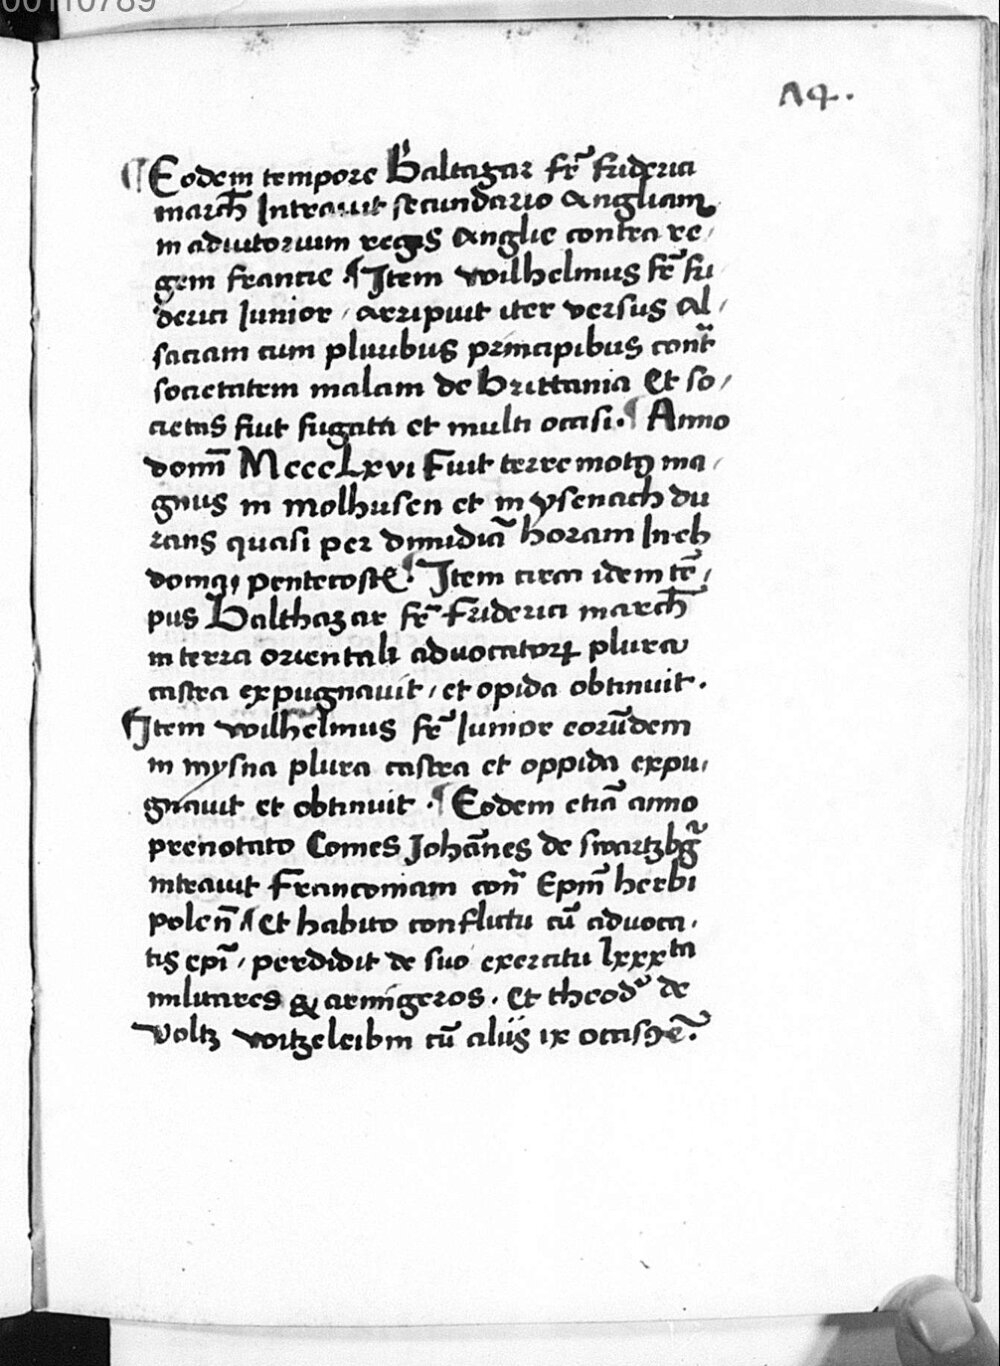 00110789
A4.
¶ Eodem tempore Baltazar fr̃ friderici
march̄ Intravit secundario Angliam
in adiutorium regis Anglie contra re/
gem francie . ¶ Item wilhelmus fr̃ fri
derici Iunior / arripuit iter versus Al/
saciam cum pluribus principibus contr̃
societatem malam de brittania Et so/
cietas fiut fugata et multi occisi . ¶ Anno
domī MccccLxvi Fuit terremotꝯ ma/
gnus in molhusen et in ysenach du
rans quasi per dimidiā horam In eb
doma penthecostẽ . ¶ Item circa idem tē/
pus Balthazar fr̃ friderici march̄
in terra orientali advocatorꝝ plura
castra expugnavit / et opida obtinuit .
¶ Item wilhelmus fr̃ Iunior eorūdem
in mysna plura castra et oppida expu/
gnavit et obtinuit . ¶ Eodem etiā anno
prenotato Comes Johānes de swartzbg̃
intravit Franconiam con̄ Epm̄ herbi
polen̄ / et habito conflictu cū advoca/
tis epī / perdidit de suo exercitu lxxxta
militares & armigeros . Et theod̃ de
voltz witzeleibin cū aliis ix occis